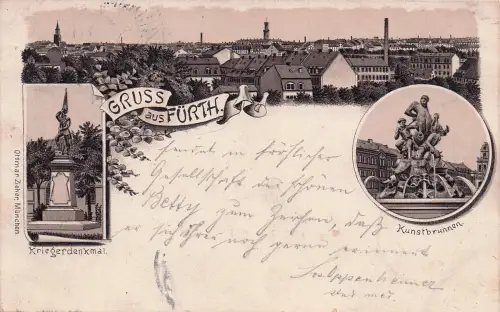 GRUSS
aus FÜRTH.
Ottmar Zieher, München.
Kriegerdenkmal.
Kunstbrunnen.
in fröhlicher
Gesellschaft der schönen
Betty zum Zeichen, daß
er sich noch gerne erinnert